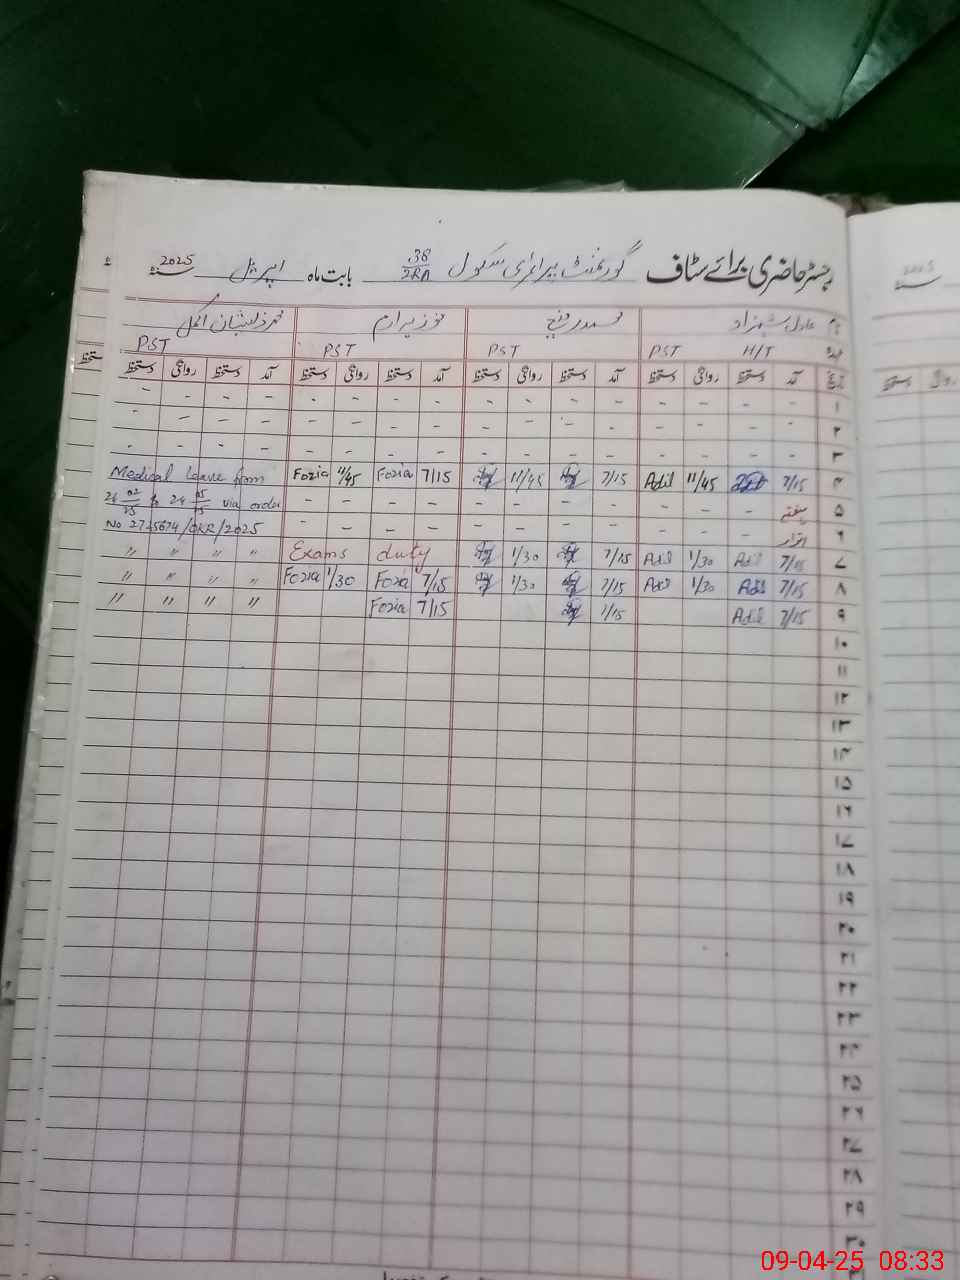 رجسٹر حاضری برائے سٹاف گورنمنٹ پرائمری سکول 38/2RA بابت ماہ اپریل سنہ 2025
نام عادل شہزاد فوزیہ ارم محمد ذیشان
عہدہ PST H/T PST PST PST
تاریخ آمد دستخط روانگی دستخط آمد دستخط روانگی دستخط آمد دستخط روانگی دستخط آمد دستخط روانگی دستخط
۱ - - - - - - - - - - - - - - - -
۲ - - - - - - - - - - - - - - - -
۳ - - - - - - - - - - - - - - - -
۴ 7/15 11/45 Adil 7/15 11/45 7/15 Fozia 11/45 Fozia Medical leave from
۵ ہفتہ - - - - - - - - - - - - 24 02/25 to 24 05/25 via order
۶ اتوار - - - - - - - - - - - - No 2745674/OKR/2025
۷ 7/15 Adil 1/30 Adil 7/15 1/30 Exams duty " " " "
۸ 7/15 Adil 1/30 Adil 7/15 1/30 7/15 Fozia 1/30 Fozia " " " "
۹ 7/15 Adil 7/15 7/15 Fozia " " " "
۱۰
۱۱
۱۲
۱۳
۱۴
۱۵
۱۶
۱۷
۱۸
۱۹
۲۰
۲۱
۲۲
۲۳
۲۴
۲۵
۲۶
۲۷
۲۸
۲۹
۳۰
09-04-25 08:33